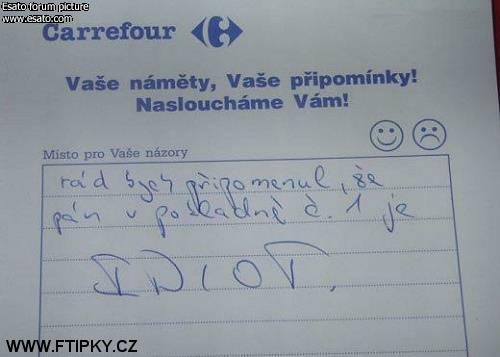 Esato forum picture
www.esato.com
Carrefour
Vaše náměty, Vaše připomínky!
Nasloucháme Vám!
Místo pro Vaše názory
rád bych připomenul, že
pán v pokladně č. 1 je
IDIOT.
WWW.FTIPKY.CZ